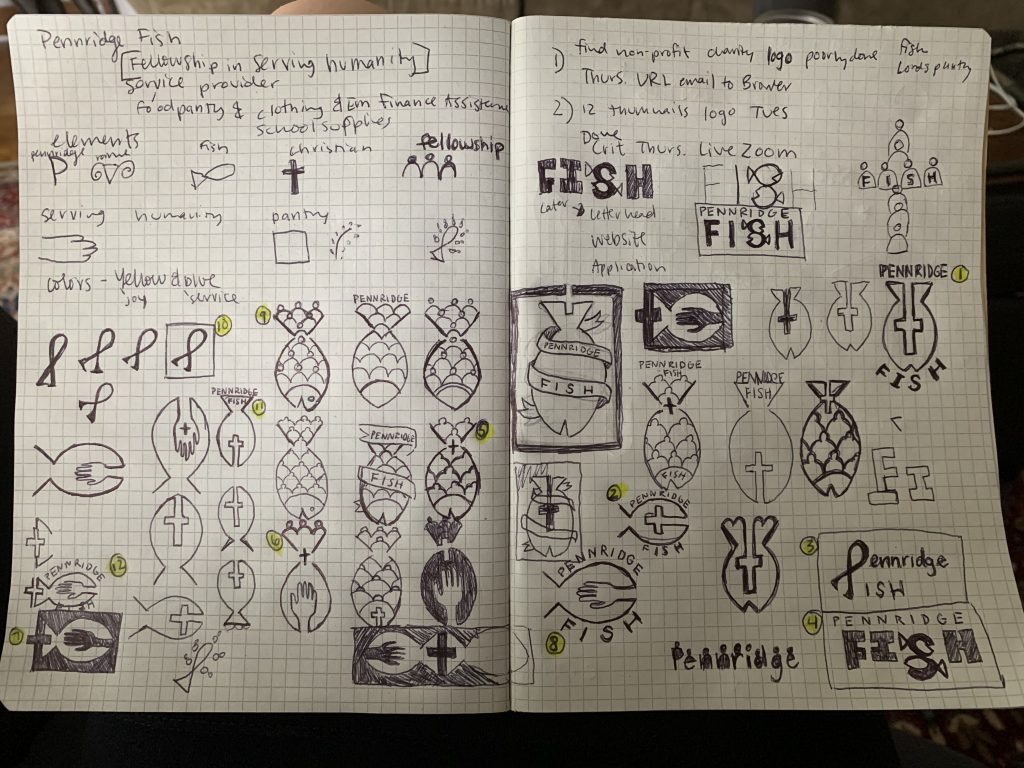 Pennridge Fish
[Fellowship in Serving humanity]
Service provider
food pantry & clothing & Em Finance Assistance
school supplies
elements
pennridge
P
fish
christian
fellowship
serving humanity
pantry
colors - Yellow & blue
joy service
10
9
PENNRIDGE
11
PENNRIDGE
FISH
PENNRIDGE
FISH
5
6
12
PENNRIDGE
7
1) find non-profit charity logo poorly done
Fish
Lords pantry
Thurs. URL email to Brower
2) 12 thumnails logo Tues
Done
Crit Thurs. Live Zoom
FISH
FISH
FISH
Later → letter head
website
Application
PENNRIDGE
FISH
PENNRIDGE 1
FISH
PENNRIDGE
FISH
PENNRIDGE
FISH
FISH
PENNRIDGE
FISH
FI
2
PENNRIDGE
FISH
PENNRIDGE
FISH
8
3
Pennridge
FISH
4
PENNRIDGE
FISH
Pennridge